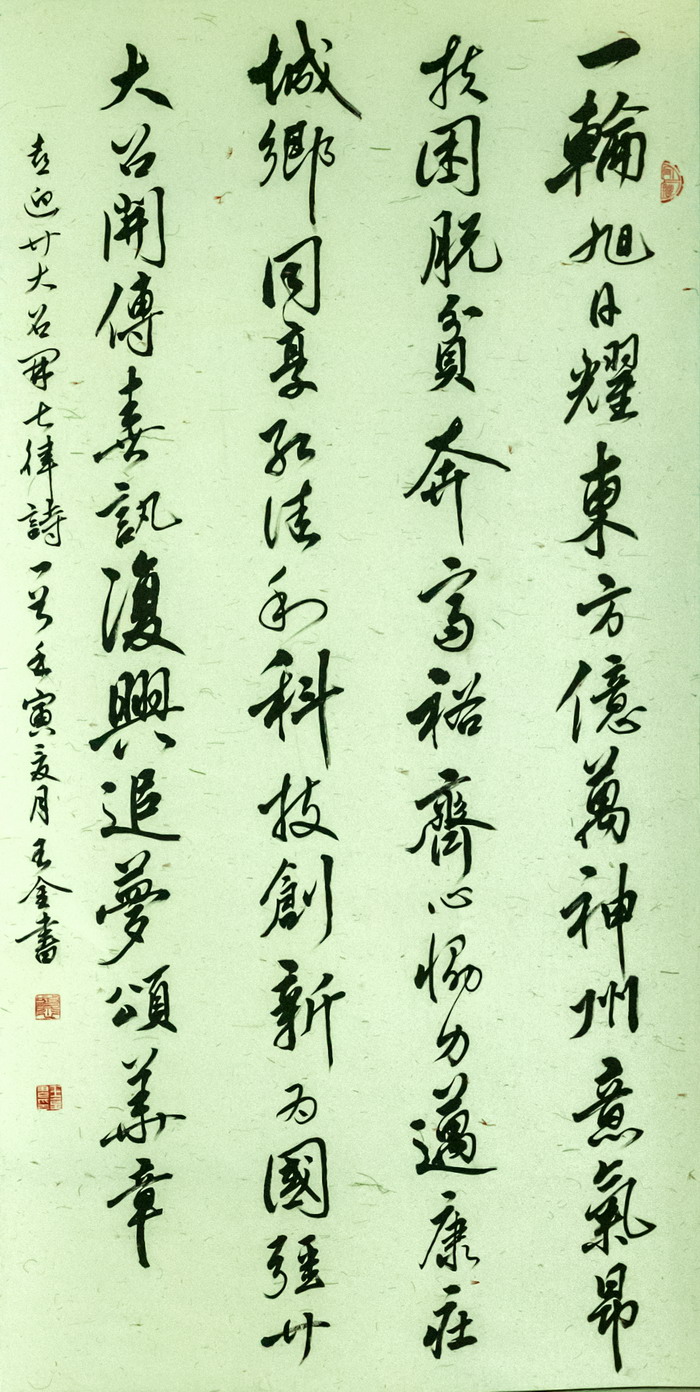 一輪旭日耀東方億萬神州意氣昂
扶困脱貧奔富裕齊心協力邁康莊
城鄉同享紅佳利科技創新為國疆廿
大召開傳喜訊復興追夢頌華章
喜迎廿大召開七律詩一首壬寅夏月王金書